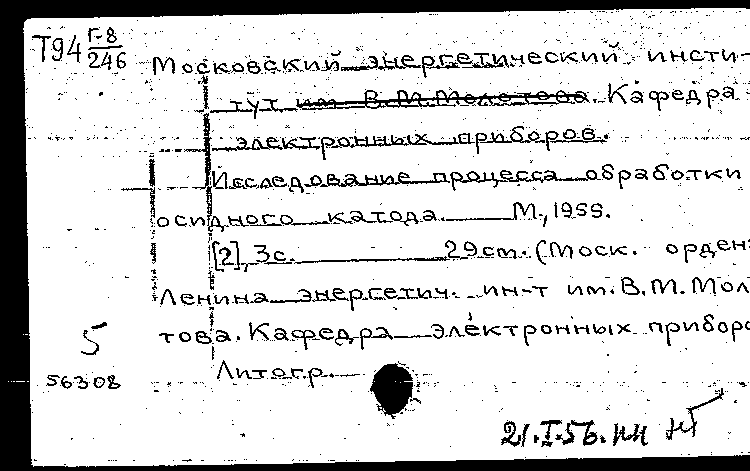 Т94 Г-8/246
Московский энергетический инсти-
тут им. В.М.Молотова. Кафедра
электронных приборов.
Исследование процесса обработки
осидного катода. М., 1955.
[2], 3с. 29см. (Моск. ордена
Ленина энергетич. ин-т им. В.М.Мол
това. Кафедра электронных приборо
Литогр.
5
56308
21.I.56.